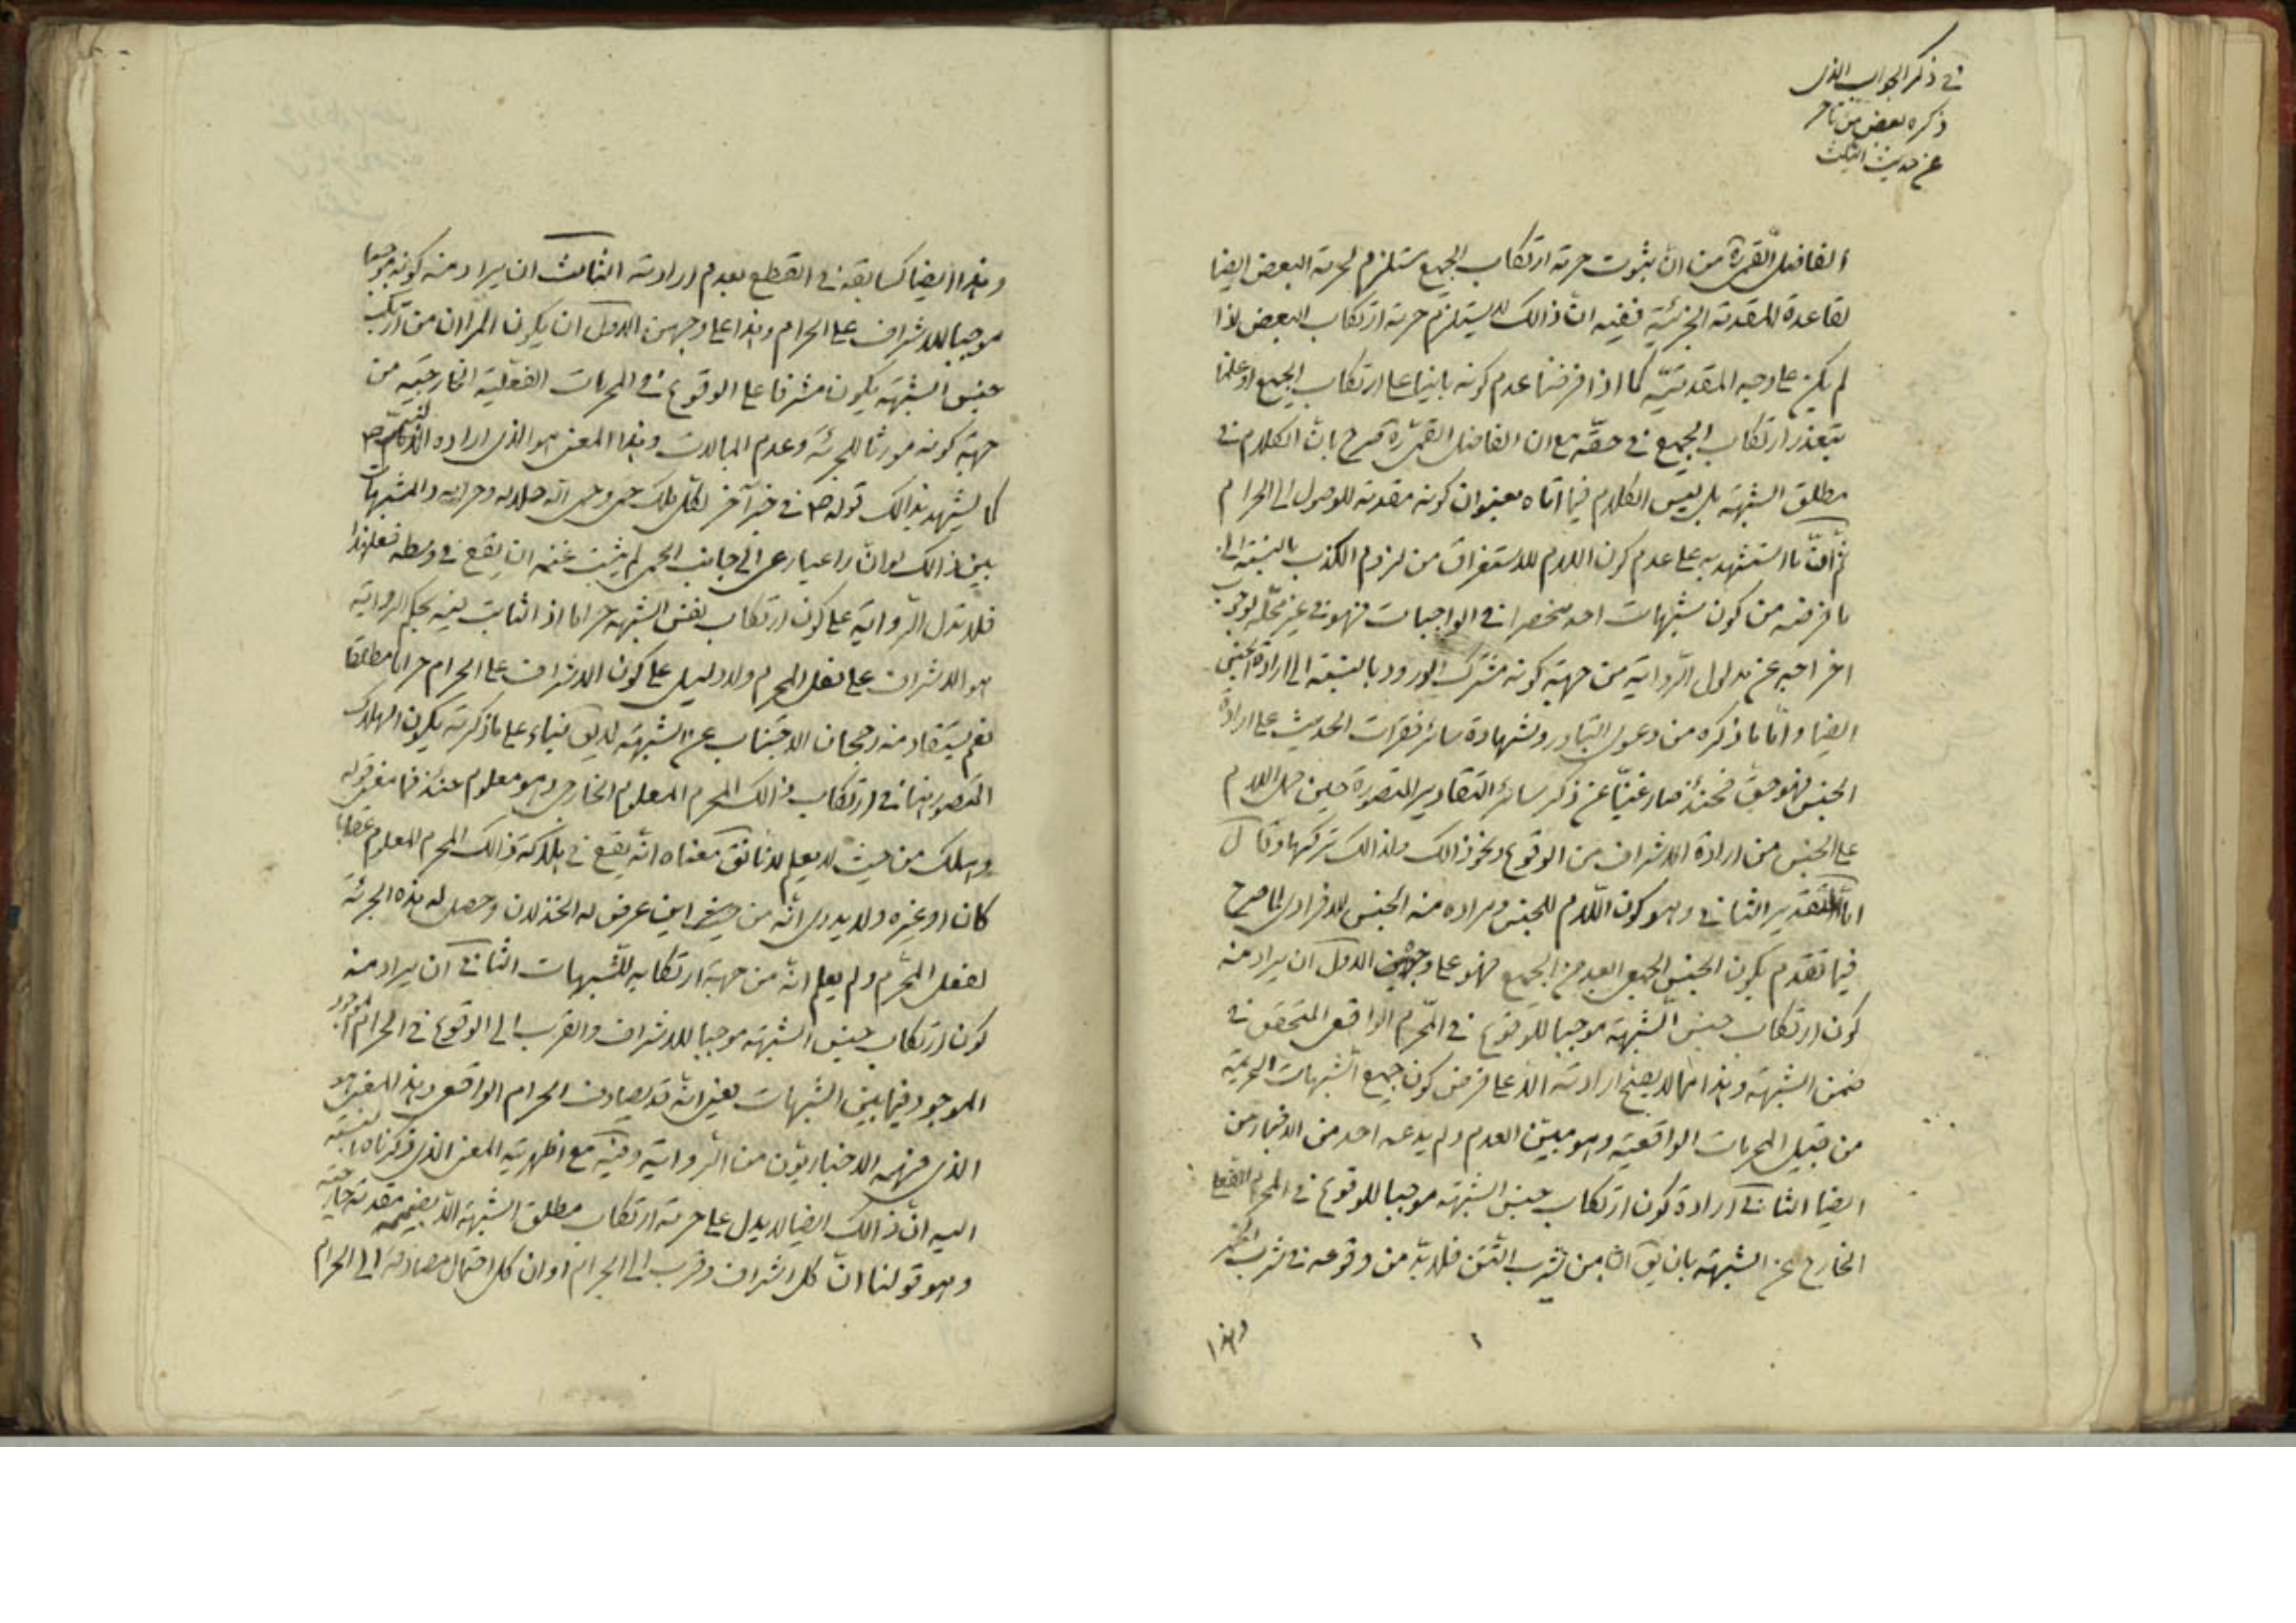 في ذكر الجواب الذي
ذكره بعض من تاخر
عن حديث التثليث
الفاضل القمي ره من ان ثبوت حرمة ارتكاب الجميع مستلزم لحرمة البعض ايضا
لقاعدة المقدمة الجزئية ففيه ان ذالك لا يستلزم حرمة ارتكاب البعض اذا
لم يكن على وجه المقدميّة كما اذا فرضنا عدم كونه بانيا على ارتكاب الجميع او علمنا
بتعذر ارتكاب الجميع في حقه مع ان الفاضل القمي ره صرح بان الكلام في
مطلق الشبهة بل ليس الكلام فيما اتاه بعنوان كونه مقدمة للوصول الى الحرام
ثم ان ما استشهد به على عدم كون اللام للاستغراق من لزوم الكذب بالنسبة الى
ما فرضه من كون شبهات احد منحصرا في الواجبات فهو في غير محله لوجوب
اخراجه عن مدلول الرواية من جهة كونه مشترك الورود بالنسبة الى ارادة الجنس
ايضا واما ما ذكره من دعوى التبادر وشهادة سائر فقرات الحديث على ارادة
الجنس فهو حق فحينئذ صار غنيا عن ذكر سائر التقادير المتصورة حين حمل اللام
على الجنس من ارادة الاشراف من الوقوع ونحو ذالك ولذالك تركها وقال
اما التقدير الثاني وهو كون اللام للجنس ومراده منه الجنس الافرادي لما صرح
فيما تقدم بكون الجنس الجمعي العبد من الجميع فهو على وجهين الاول ان يراد منه
كون ارتكاب جنس الشبهة موجبا للوقوع في المحرم الواقعي المتحقق في
ضمن الشبهة وهذا مما لا يصح ارادته الا على فرض كون جميع الشبهات التحريمية
من قبيل المحرمات الواقعية وهو مبين العدم ولم يدعه احد من الاخبارين
ايضا الثاني ارادة كون ارتكاب جنس الشبهة موجبا للوقوع في المحرم القطعي
الخارج عن الشبهة بان يق ان من شرب التتن فلا بد من وقوعه في شرب الخمر
وهذا
وهذا ايضا كسابقه في القطع بعدم ارادته الثالث ان يراد منه كونه موجبا
موجبا للاشراف على الحرام وهذا على وجهين الاول ان يكون المراد ان من ارتكب
جنس الشبهة يكون مشرفا على الوقوع في المحرمات الفعلية الخارجية من
جهة كونه مورثا للجرئة وعدم المبالات وهذا المعنى هو الذي اراده
كما يشهد بذالك قوله ص في خبر آخر لكل ملك حمى وحمى الله حلاله وحرامه والمشتبهات
بين ذالك لو ان راعيا رعى الى جانب الحمى لم يثبت غنمه ان يقع في وسطه فعلى هذا
فلا تدل الرواية على كون ارتكاب نفس الشبهة حراما اذ الثابت فيه بحكم الرواية
هو الاشراف على فعل المحرم ولا دليل على كون الاشراف على الحرام حراما مطلقا
نعم يستفاد منه رجحان الاجتناب عن الشبهة لا يق بناء على ما ذكرته يكون الهلاك
المتصور هنا في ارتكاب ذالك المحرم المعلوم الخارجي وهو معلوم عنده فما معنى قوله
وهلك من حيث لا يعلم لانا نق معناه انه يقع في هلاكة ذالك المحرم المعلوم
كان او غيره ولا يدري انه من اين عرض له الخذلان وحصل له هذه الجرئة
لفعل المحرم ولم يعلم انه من جهة ارتكابه للشبهات الثاني ان يراد منه
كون ارتكاب جنس الشبهة موجبا للاشراف والقرب الى الوقوع في الحرام
الموجود فيما بين الشبهات بمعنى انه قد يصادف الحرام الواقعي وهذا المعنى هو
الذي فهمه الاخباريون من الرواية وفيه مع اظهرية المعنى الذي ذكرناه بالنسبة
اليه ان ذالك ايضا لا يدل على حرمة ارتكاب مطلق الشبهة الا بضميمة مقدمة خارجية
وهو قولنا ان كل اشراف وقرب الى الحرام او ان كل احتمال مصادفة الى الحرام